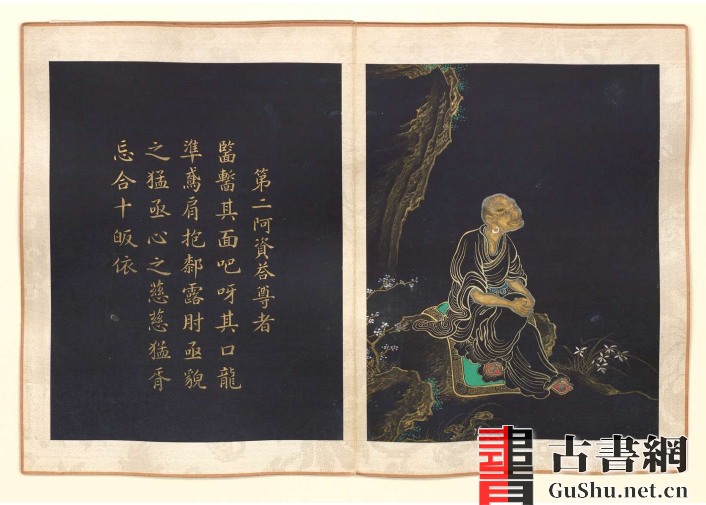 第二阿資荅尊者
其面吧呀其口龍
準鳶肩抱厀露肘亟貌
之猛亟心之慈慈猛胥
忘合十皈依
書
古書網
GuShu.net.cn